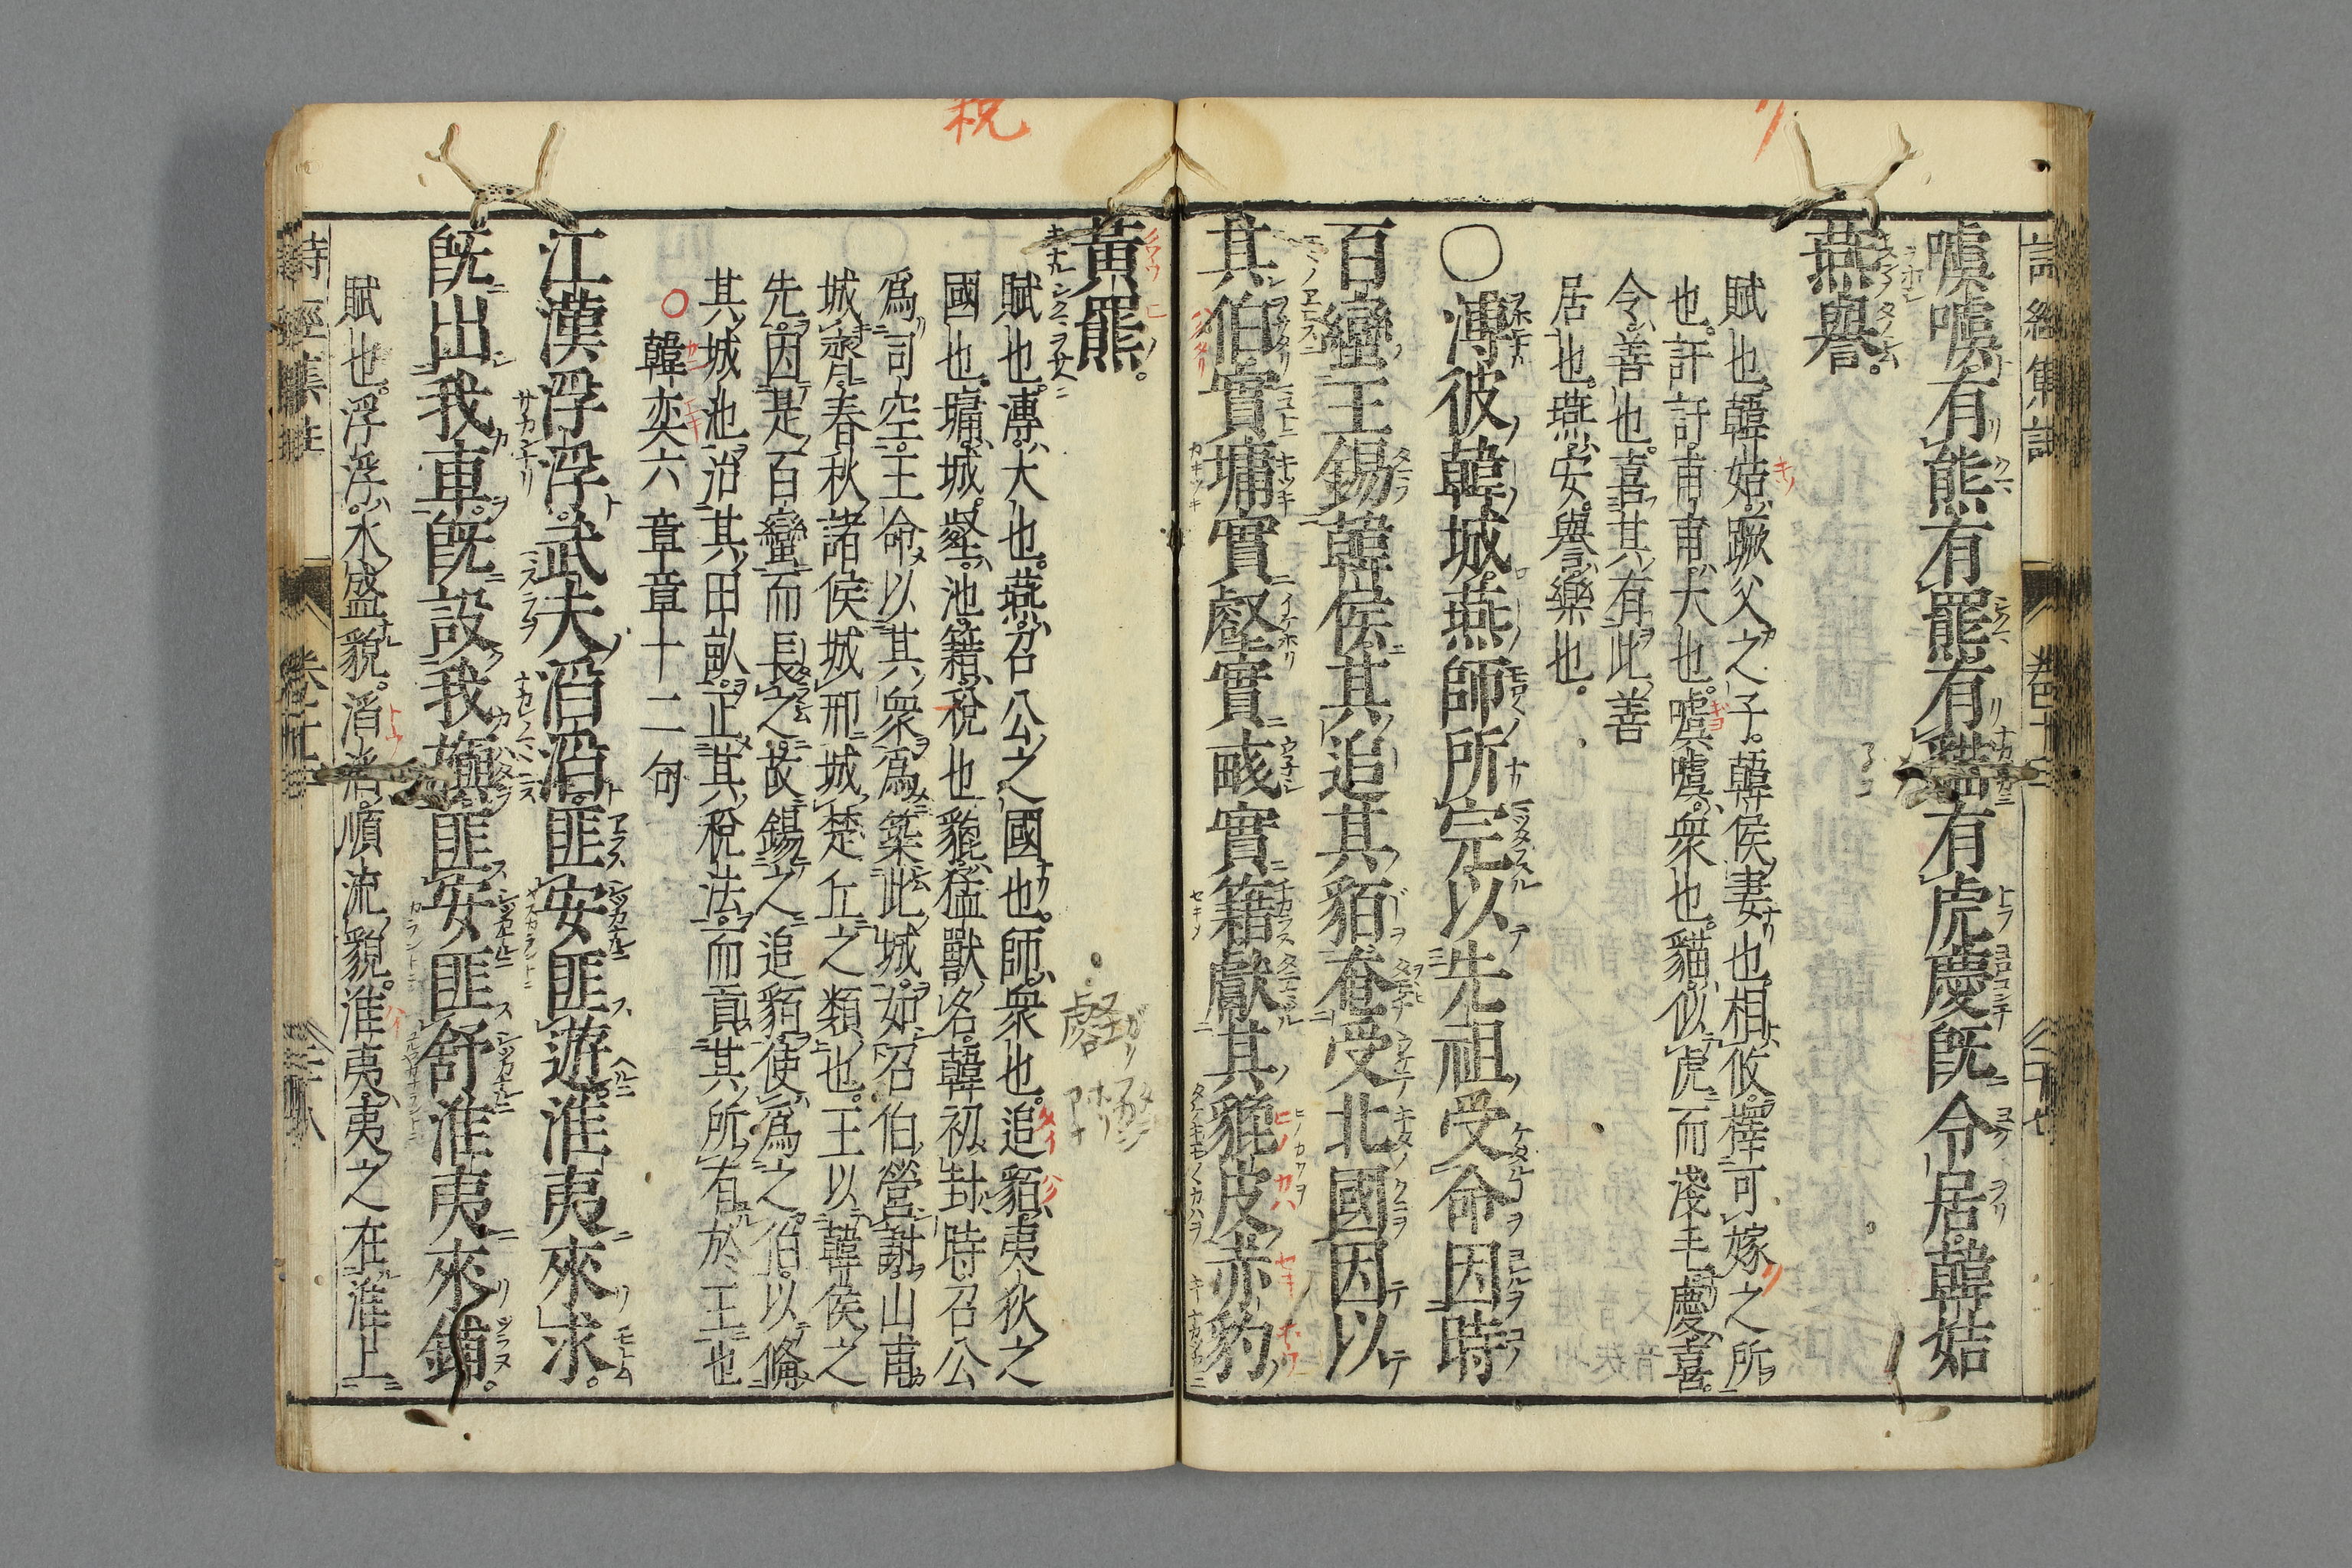 噳噳有熊有羆有貓有虎慶旣令居韓姞
燕譽。
賦也。韓姞。蹶父之子。韓侯妻也。相攸。擇可嫁之所
也。訏訏甫甫。大也。噳噳。衆也。貓。似虎而淺毛。慶。喜。
令。善也。喜其有此善
居也。燕。安。譽。樂也。
○溥彼韓城。燕師所完以先祖受命因時
百蠻王錫韓侯其追其貊奄受北國因以
其伯實墉實壑實畝實籍獻其貔皮赤豹
黃羆。
賦也。溥。大也。燕。召公之國也。師。衆也。追貊。夷狄之
國也。墉。城。壑。池。籍。稅也。貔。猛獸名。韓初封時。召公
爲司空。王命以其衆爲築此城。如召伯營謝。山甫
城齊。春秋諸侯城邢。城楚丘之類也。王以韓侯之
先。因是百蠻而長之。故錫之追貊。使爲之伯。以脩
其城池。治其田畝。正其稅法。而貢其所有於王也
○韓奕六章章十二句
江漢浮浮。武夫滔滔。匪安匪遊。淮夷來求。
旣出我車。旣設我旟匪安匪舒淮夷來鋪。
賦也。浮浮。水盛貌。滔滔。順流貌。淮夷。夷之在淮上
詩經集註
卷七
税